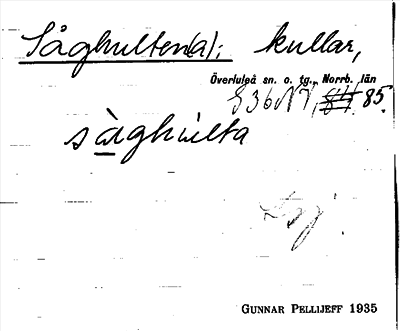 Såghulten(a): kullar,
Överluleå sn. o. tg., Norrb. län
S36NV, 85.
sàghùlta
GUNNAR PELLIJEFF 1935